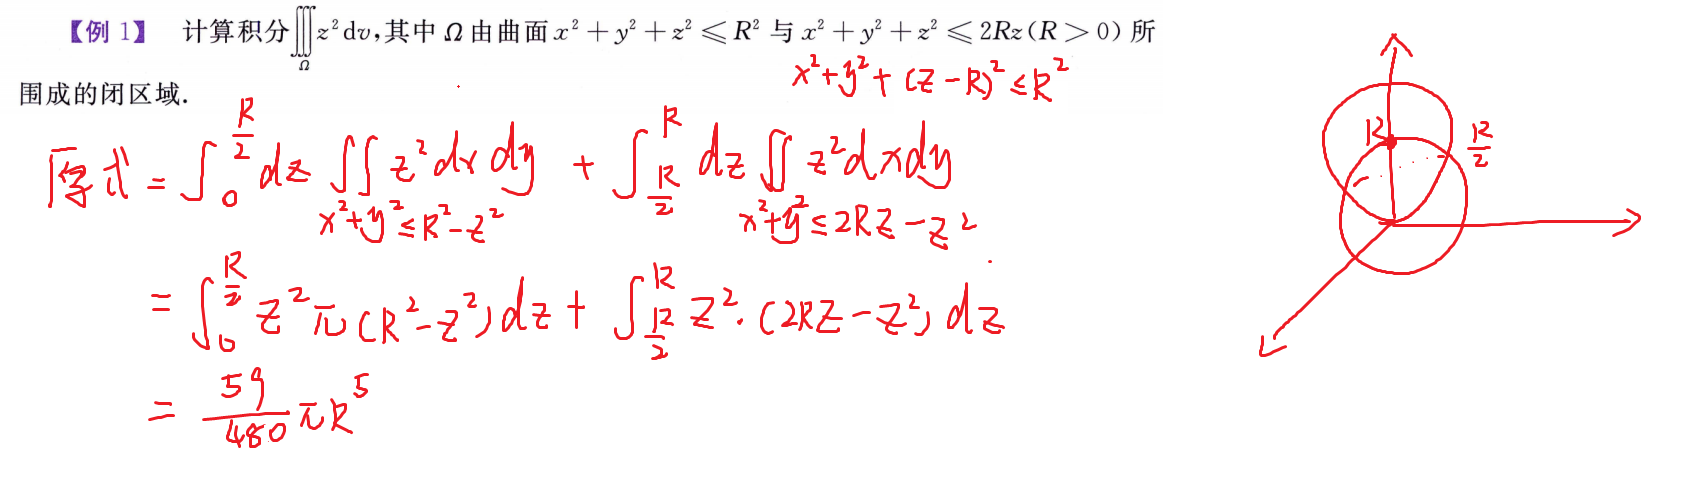 【例 1】 计算积分∭_Ω z² dv,其中 Ω 由曲面 x² + y² + z² ⩽ R² 与 x² + y² + z² ⩽ 2Rz(R > 0) 所
围成的闭区域.
x²+y²+(z-R)²≤R²
原式 = ∫_0^{R/2} dz ∬_{x²+y²≤R²-z²} z²dxdy + ∫_{R/2}^{R} dz ∬_{x²+y²≤2Rz-z²} z²dxdy
= ∫_0^{R/2} z²π(R²-z²)dz + ∫_{R/2}^{R} z²·(2Rz-z²)dz
= 59/480 πR⁵
R
R/2